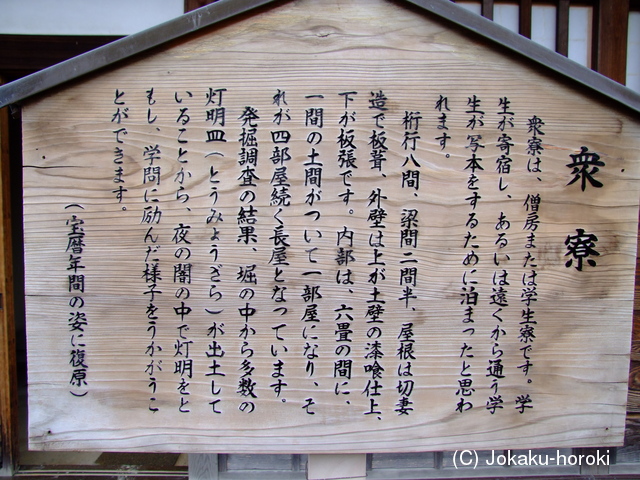 衆寮
衆寮は、僧房または学生寮です。学
生が寄宿し、あるいは遠くから通う学
生が写本をするために泊まったと思わ
れます。
桁行八間、梁間二間半、屋根は切妻
造で板葺、外壁は上が土壁の漆喰仕上、
下が板張です。内部は、六畳の間に、
一間の土間がついて一部屋になり、そ
れが四部屋続く長屋となっています。
発掘調査の結果、堀の中から多数の
灯明皿（とうみょうざら）が出土して
いることから、夜の闇の中で灯明をと
もし、学問に励んだ様子をうかがうこ
とができます。
（宝暦年間の姿に復原）
(C) Jokaku-horoki